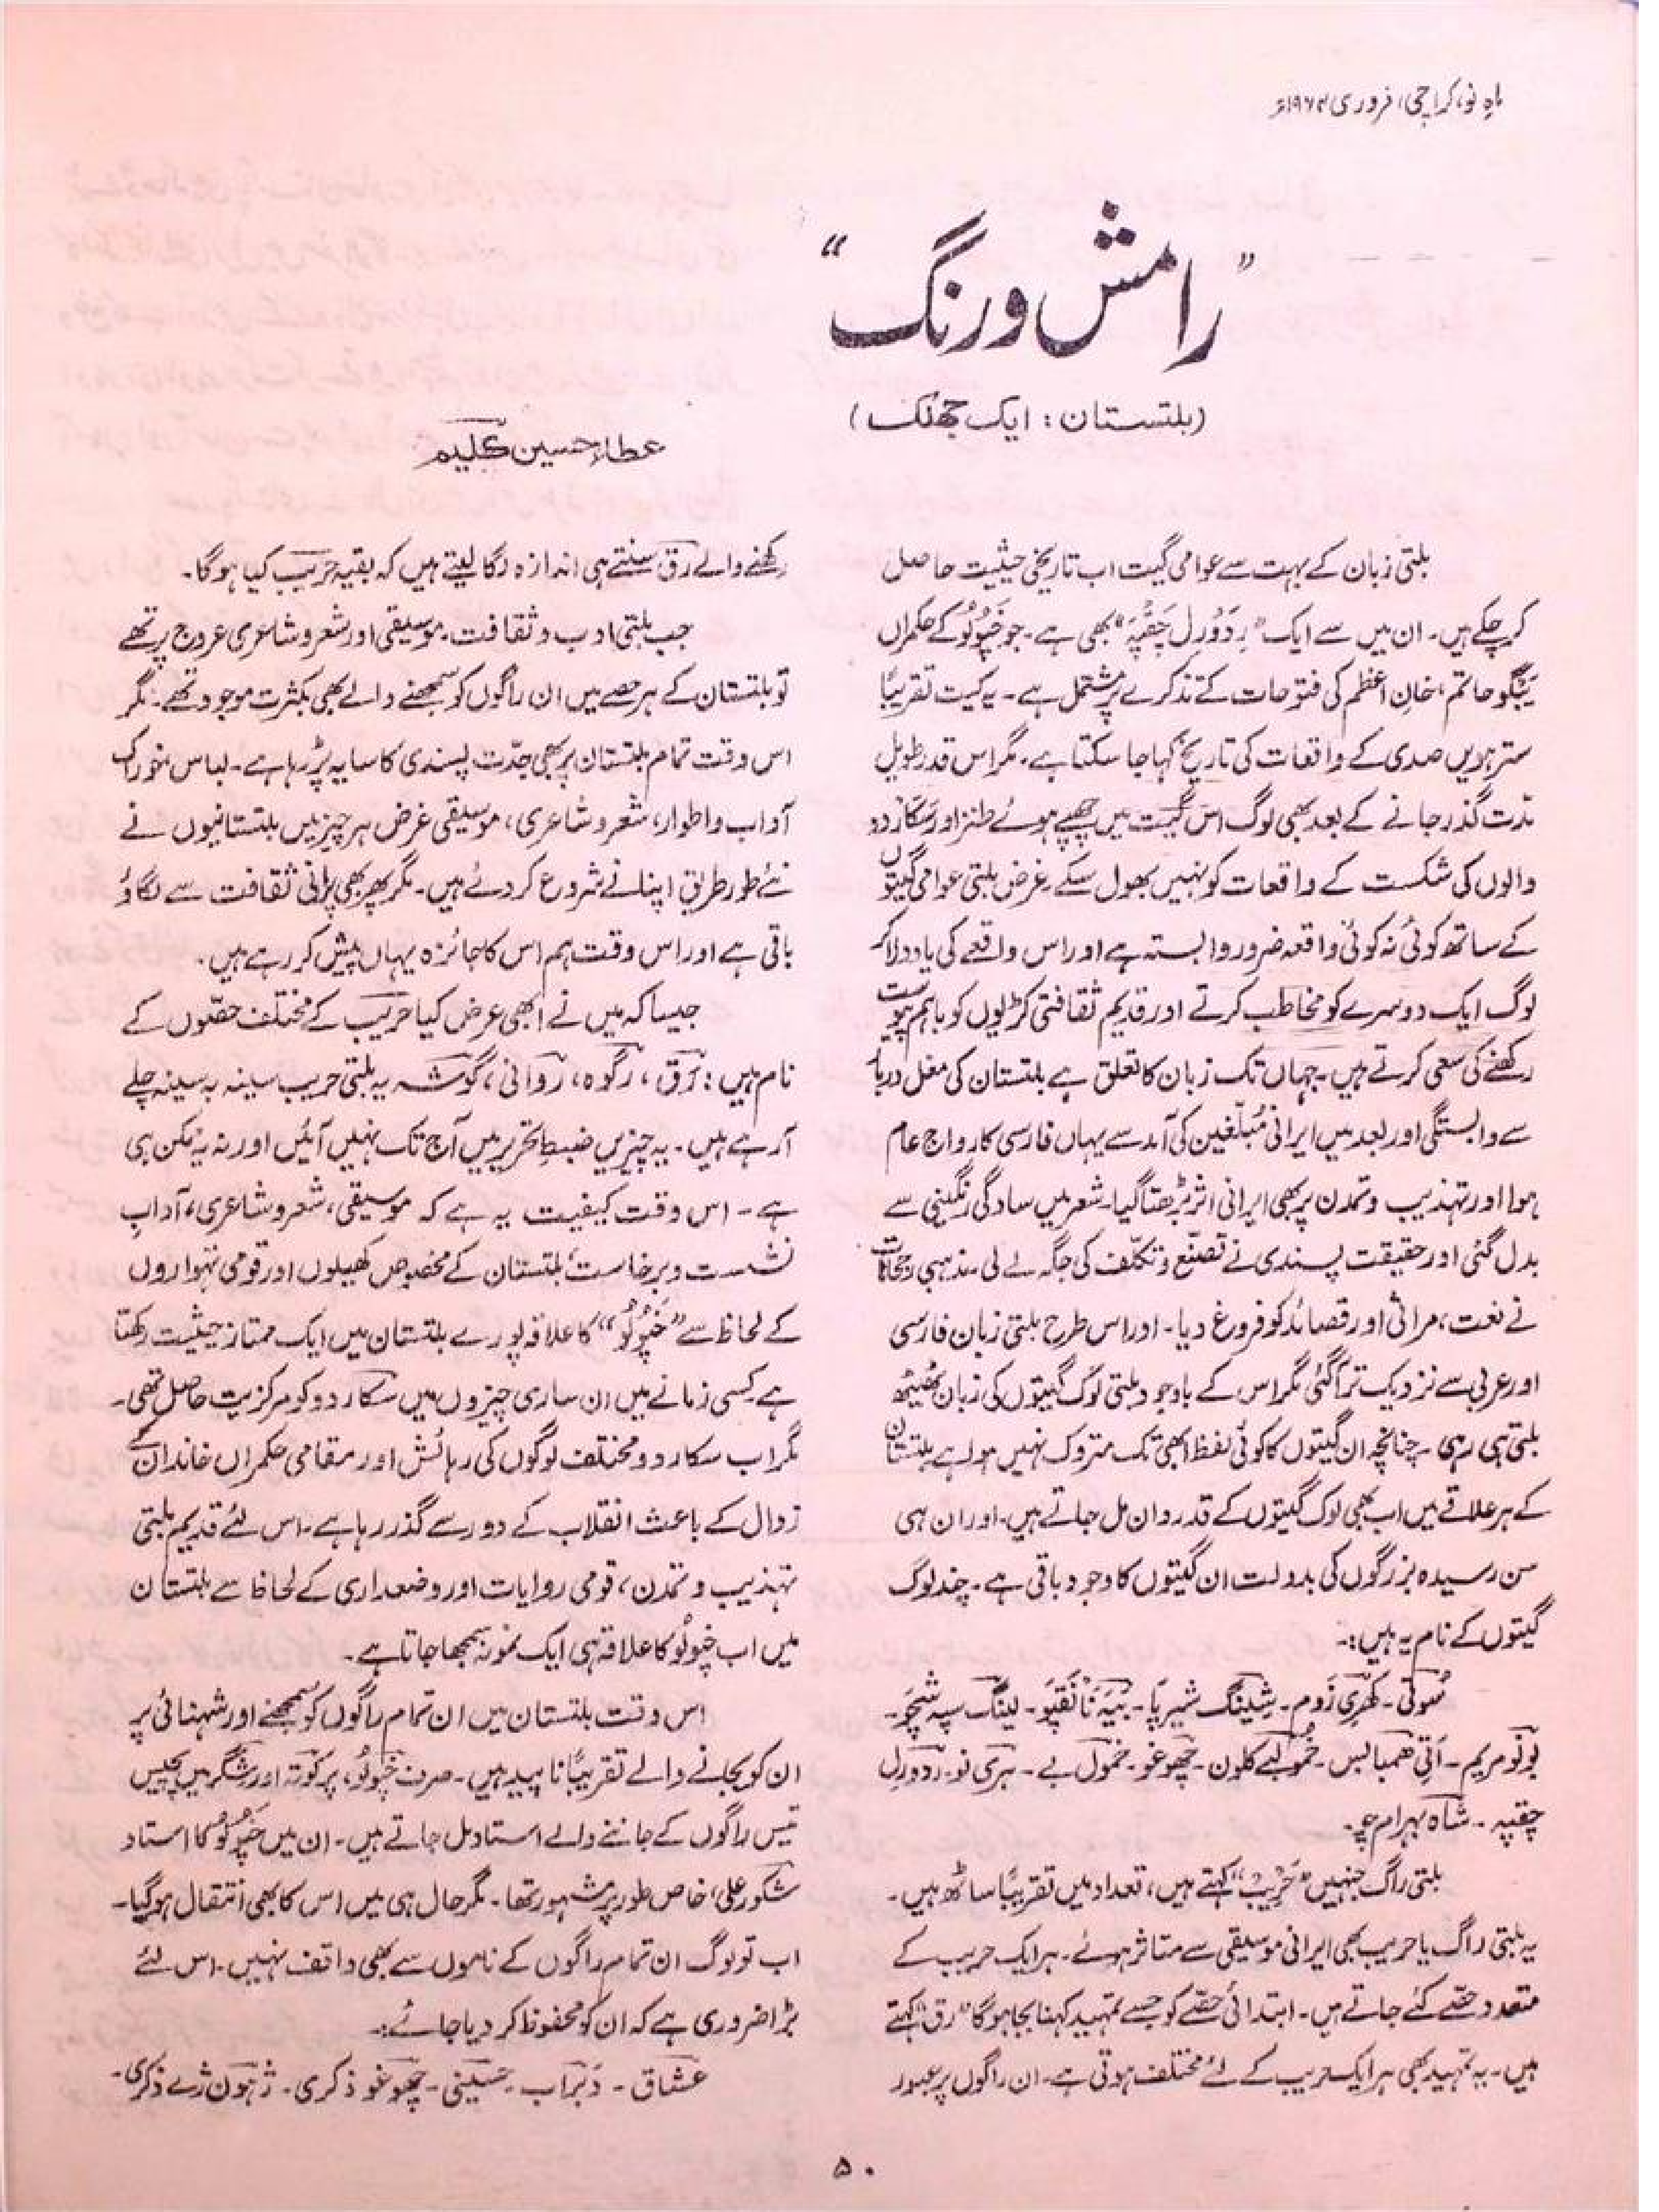 ماہِ نو، کراچی، فروری ۱۹۶۴ء
”رامش و رنگ“
(بلتستان: ایک جھلک)
عطاء حسین کلیم
بلتی زبان کے بہت سے عوامی گیت اب تاریخی حیثیت حاصل
کر چکے ہیں۔ ان میں سے ایک ”رِدَوُرِل چَقپَہ“ بھی ہے۔ جو خَپُولُو کے حکمراں
یَبگو حاتم، خانِ اعظم کی فتوحات کے تذکرے پر مشتمل ہے۔ یہ گیت تقریباً
سترہویں صدی کے واقعات کی تاریخ کہا جا سکتا ہے۔ مگر اس قدر طویل
مدّت گذر جانے کے بعد بھی لوگ اس گیت میں چھپے ہوئے طنز اور سکاردو
والوں کی شکست کے واقعات کو نہیں بھول سکے۔ غرض بلتی عوامی گیتوں
کے ساتھ کوئی نہ کوئی واقعہ ضرور وابستہ ہے اور اس واقعے کی یاد دلا کر
لوگ ایک دوسرے کو مخاطب کرتے اور قدیم ثقافتی کڑیوں کو باہم پیوست
رکھنے کی سعی کرتے ہیں۔ جہاں تک زبان کا تعلق ہے بلتستان کی مغل دربار
سے وابستگی اور بعد میں ایرانی مُبلّغین کی آمد سے یہاں فارسی کا رواج عام
ہوا اور تہذیب و تمدن پر بھی ایرانی اثر بڑھتا گیا۔ شعر میں سادگی رنگینی سے
بدل گئی اور حقیقت پسندی نے تصنّع و تکلّف کی جگہ لے لی۔ مذہبی رجحانات
نے نعت، مراثی اور قصائد کو فروغ دیا۔ اور اس طرح بلتی زبان فارسی
اور عربی سے نزدیک تر آگئی مگر اس کے باوجود بلتی لوگ گیتوں کی زبان ٹھیٹھ
بلتی ہی رہی۔ چنانچہ ان گیتوں کا کوئی لفظ ابھی تک متروک نہیں ہوا ہے بلتستان
کے ہر علاقے میں اب بھی لوک گیتوں کے قدر دان مل جاتے ہیں۔ اور ان ہی
سن رسیدہ بزرگوں کی بدولت ان گیتوں کا وجود باقی ہے۔ چند لوک
گیتوں کے نام یہ ہیں:۔
سُوکی۔ کھَری زَوم۔ شِلِینگ شیرپَا۔ بَیَہ نَانَقپَو۔ لینگ سپہ شَچَو۔
بونو مریم۔ اَتی ھمبالبس۔ خُموُلبے کلون۔ چھوغو۔ خمول بے۔ ہری نو۔ ردورِل
چقپہ۔ شاہ بہرام چو۔
بلتی راگ جنہیں ”حَرِیب“ کہتے ہیں، تعداد میں تقریباً ساٹھ ہیں۔
یہ بلتی راگ یا حریب بھی ایرانی موسیقی سے متاثر ہوئے۔ ہر ایک حریب کے
متعدد حصّے کئے جاتے ہیں۔ ابتدائی حصّے کو جسے تمہید کہنا بجا ہوگا ”رق“ کہتے
ہیں۔ یہ تمہید بھی ہر ایک حریب کے لئے مختلف ہوتی ہے۔ ان راگوں پر عبور
رکھنے والے رق سنتے ہی اندازہ لگا لیتے ہیں کہ بقیہ حریب کیا ہوگا۔
جب بلتی ادب و ثقافت، موسیقی اور شعر و شاعری عروج پر تھے
تو بلتستان کے ہر حصے میں ان راگوں کو سمجھنے والے بھی بکثرت موجود تھے۔ مگر
اس وقت تمام بلتستان پر بھی جدّت پسندی کا سایہ پڑ رہا ہے۔ لباس خوراک
آداب و اطوار، شعر و شاعری، موسیقی غرض ہر چیز میں بلتستانیوں نے
نئے طور طریق اپنانے شروع کر دئے ہیں۔ مگر پھر بھی پرانی ثقافت سے لگاؤ
باقی ہے اور اس وقت ہم اس کا جائزہ یہاں پیش کر رہے ہیں۔
جیسا کہ میں نے ابھی عرض کیا حریب کے مختلف حصّوں کے
نام ہیں: رَق، رگوہ، روانی، گوشہ یہ بلتی حریب سینہ بہ سینہ چلے
آ رہے ہیں۔ یہ چیزیں ضبطِ تحریر میں آج تک نہیں آئیں اور نہ یہ ممکن ہی
ہے۔ اس وقت کیفیت یہ ہے کہ موسیقی، شعر و شاعری، آدابِ
نشست و برخاست، بلتستان کے مخصوص کھیلوں اور قومی تہواروں
کے لحاظ سے ”خَپُولُو“ کا علاقہ پورے بلتستان میں ایک ممتاز حیثیت رکھتا
ہے۔ کسی زمانے میں ان ساری چیزوں میں سکاردو کو مرکزیت حاصل تھی۔
مگر اب سکاردو مختلف لوگوں کی رہائش اور مقامی حکمراں خاندان کے
زوال کے باعث انقلاب کے دور سے گذر رہا ہے۔ اس لئے قدیم بلتی
تہذیب و تمدن، قومی روایات اور وضعداری کے لحاظ سے بلتستان
میں اب خپولُو کا علاقہ ہی ایک نمونہ سمجھا جاتا ہے۔
اس وقت بلتستان میں ان تمام راگوں کو سمجھنے اور شہنائی پر
ان کو بجانے والے تقریباً ناپید ہیں۔ صرف خَپُولُو، پرکوتہ اور شگر میں پچیس
تیس راگوں کے جاننے والے استاد مل جاتے ہیں۔ ان میں خَپُولُو کا استاد
شکور علی، خاص طور پر مشہور تھا۔ مگر حال ہی میں اس کا بھی انتقال ہو گیا۔
اب تو لوگ ان تمام راگوں کے ناموں سے بھی واقف نہیں۔ اس لئے
بڑا ضروری ہے کہ ان کو محفوظ کر دیا جائے:۔
عشاق۔ دَبَراب۔ حسینی۔ چھوغو ذکری۔ ژہون ژے ذکری۔
۵۰